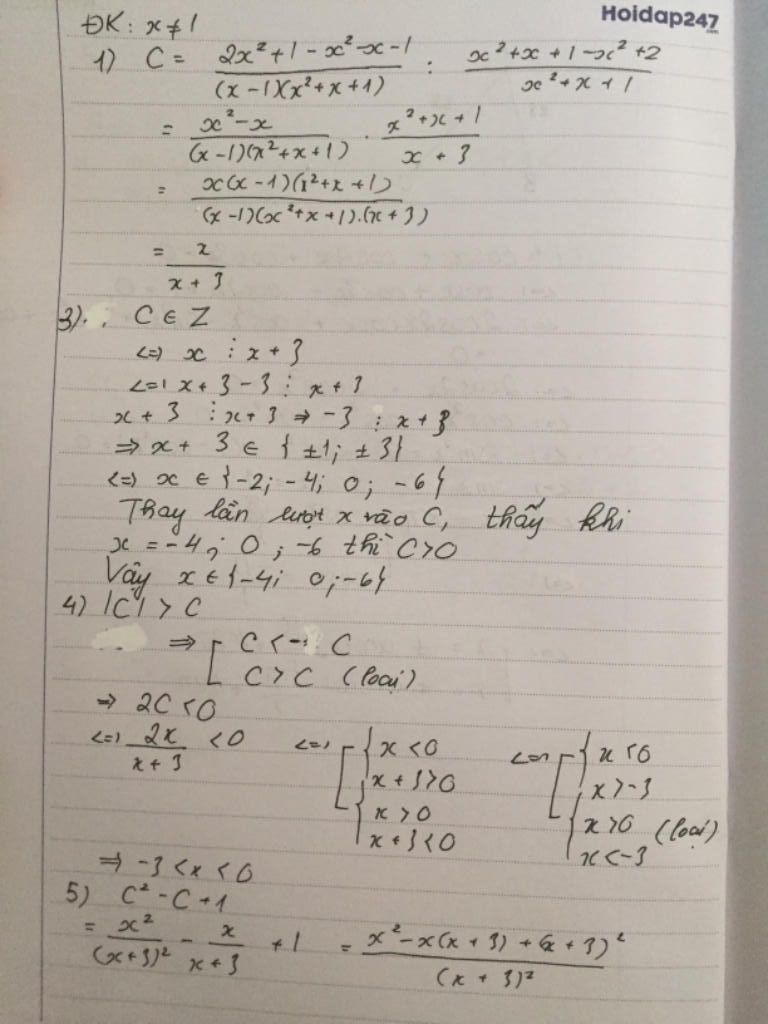 Hoidap247
.com
ĐK: x ≠ 1
1) C = (2x² + 1 - x² - x - 1)/((x - 1)(x² + x + 1)) : (x² + x + 1 - x² + 2)/(x² + x + 1)
= (x² - x)/((x - 1)(x² + x + 1)) . (x² + x + 1)/(x + 3)
= (x(x - 1)(x² + x + 1))/((x - 1)(x² + x + 1).(x + 3))
= x/(x + 3)
3) C ∈ Z
<=> x ⋮ x + 3
<=> x + 3 - 3 ⋮ x + 3
x + 3 ⋮ x + 3 => -3 ⋮ x + 3
=> x + 3 ∈ {±1; ±3}
<=> x ∈ {-2; -4; 0; -6}
Thay lần lượt x vào C, thấy khi
x = -4; 0; -6 thì C > 0
Vậy x ∈ {-4; 0; -6}
4) |C| > C
=> [ C < - C
C > C (loại)
=> 2C < 0
<=> 2x/(x + 3) < 0 <=> [ { x < 0 <=> [ { x < 0
x + 3 > 0 x > -3
{ x > 0 { x > 0 (loại)
x + 3 < 0 x < -3
=> -3 < x < 0
5) C² - C + 1
= x²/(x + 3)² - x/(x + 3) + 1 = (x² - x(x + 3) + (x + 3)²)/(x + 3)²